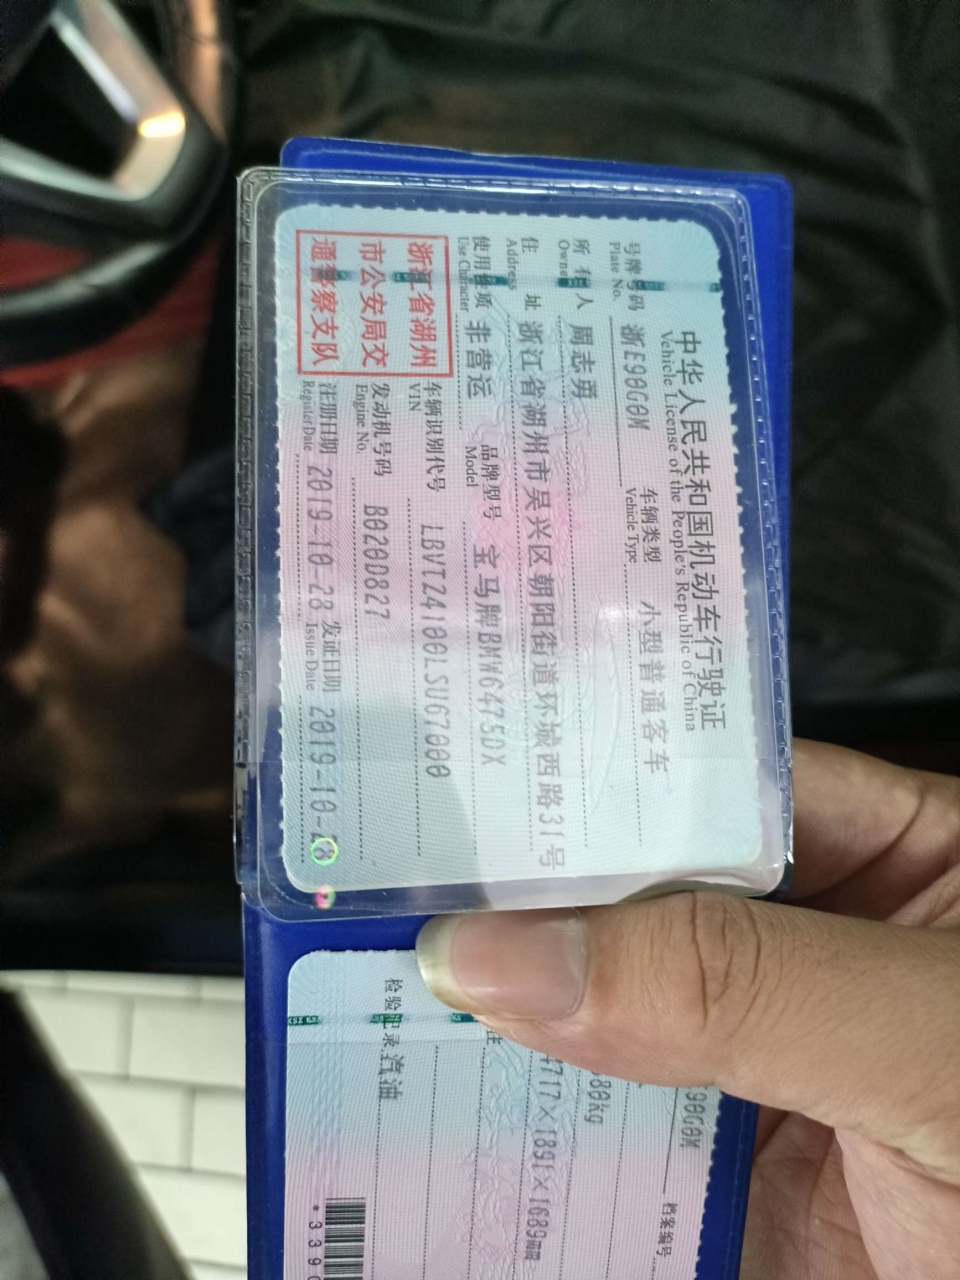 中华人民共和国机动车行驶证
Vehicle License of the People's Republic of China
号牌号码 浙E90G0M 车辆类型 小型普通客车
Plate No. Vehicle Type
所有人 周志勇
Owner
住址 浙江省湖州市吴兴区朝阳街道环城西路31号
Address
使用性质 非营运 品牌型号 宝马牌BMW6475DX
Use Character Model
浙江省湖州
市公安局交
通警察支队
车辆识别代号 LBVTZ4100LSU67000
VIN
发动机号码 B020D827
Engine No.
注册日期 2019-10-28 发证日期 2019-10-28
Register Date Issue Date
90G0M 档案编号
80kg
4717×1891×1689mm
注
检验记录 汽油
*3390